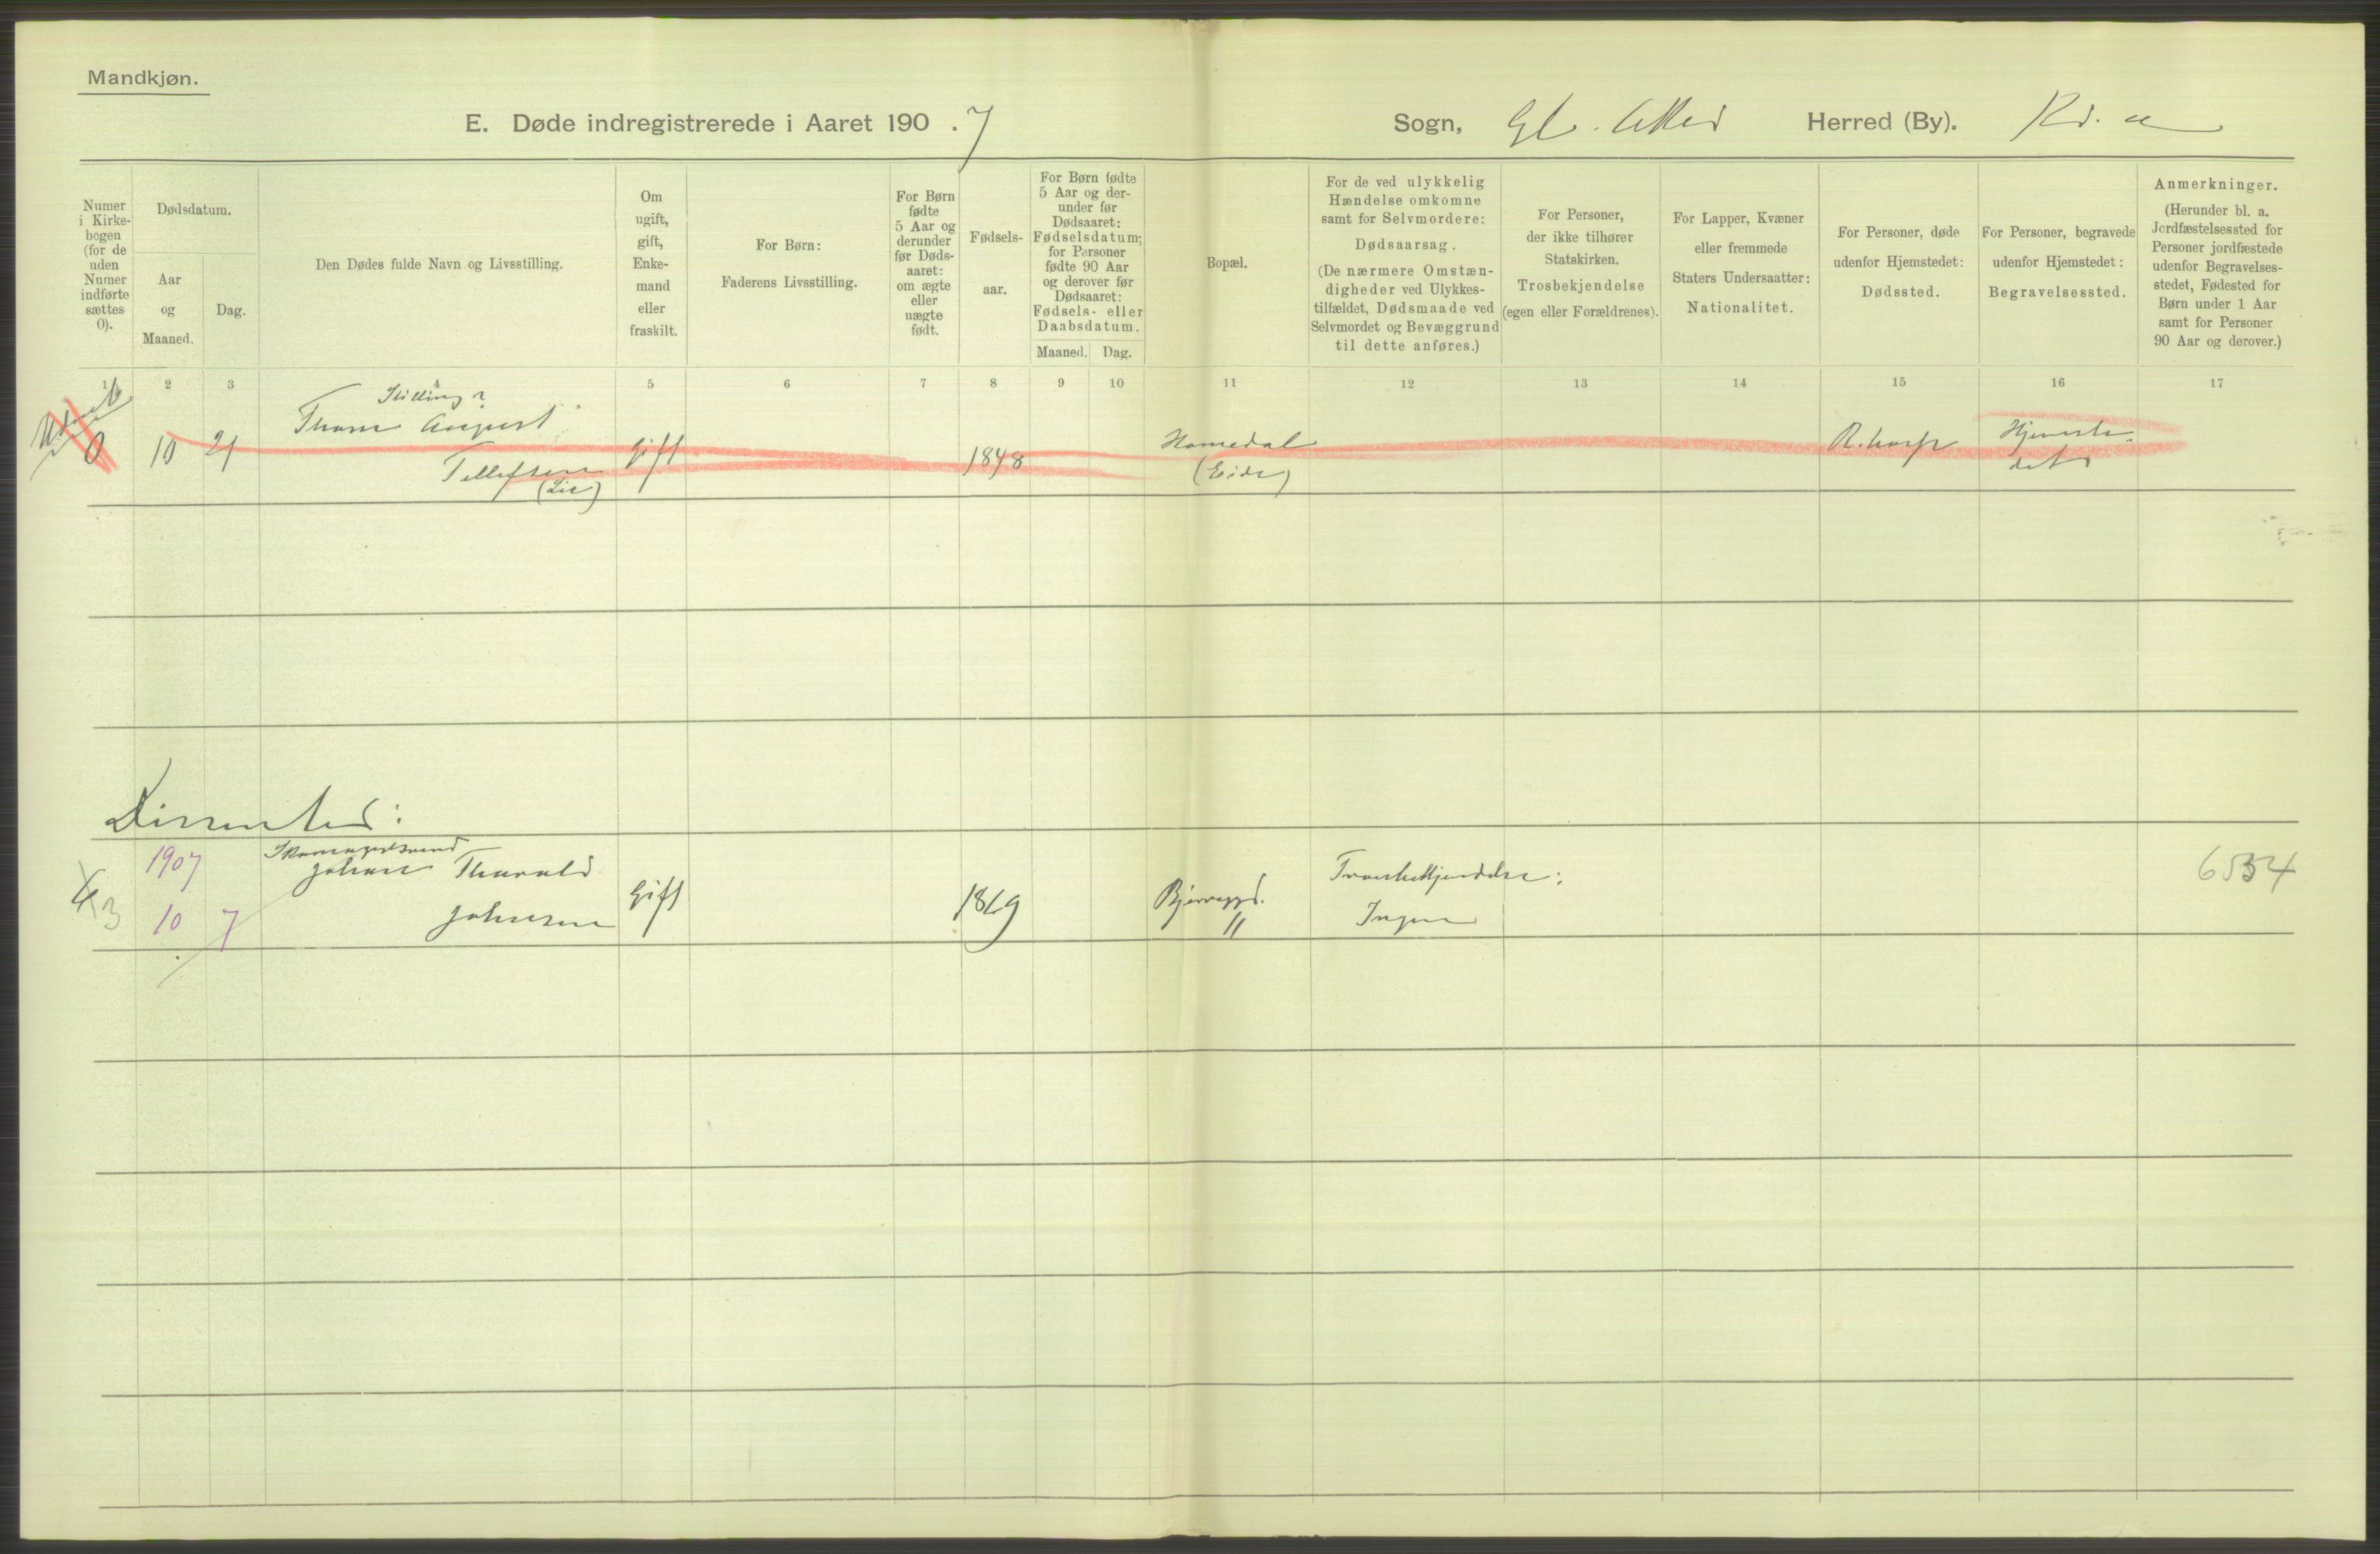 Mandkjøn.
E. Døde indregistrerede i Aaret 190 . 7
Sogn, Gl. Aker Herred (By). Kr. a
Numer i Kirke-
bogen
(for de
uden
Numer
indførte
sættes
0).
Dødsdatum.
Aar
og
Maaned.
Dag.
Den Dødes fulde Navn og Livsstilling.
Om
ugift,
gift,
Enke-
mand
eller
fraskilt.
For Børn:
Faderens Livsstilling.
For Børn
fødte
5 Aar og
derunder
før Døds-
aaret:
om ægte
eller
uægte
født.
Fødsels-
aar.
For Børn fødte
5 Aar og der-
under før
Dødsaaret:
Fødselsdatum;
for Personer
fødte 90 Aar
og derover før
Dødsaaret:
Fødsels- eller
Daabsdatum.
Maaned. Dag.
Bopæl.
For de ved ulykkelig
Hændelse omkomne
samt for Selvmordere:
Dødsaarsag.
(De nærmere Omstæn-
digheder ved Ulykkes-
tilfældet, Dødsmaade ved
Selvmordet og Bevæggrund
til dette anføres.)
For Personer,
der ikke tilhører
Statskirken.
Trosbekjendelse
(egen eller Forældrenes).
For Lapper, Kvæner
eller fremmede
Staters Undersaatter:
Nationalitet.
For Personer, døde
udenfor Hjemstedet:
Dødssted.
For Personer, begravede
udenfor Hjemstedet:
Begravelsessted.
Anmerkninger.
(Herunder bl. a.
Jordfæstelsessted for
Personer jordfæstede
udenfor Begravelses-
stedet, Fødested for
Børn under 1 Aar
samt for Personer
90 Aar og derover.)
1 2 3 4 5 6 7 8 9 10 11 12 13 14 15 16 17
Stilling?
Thom August
0 10 21 Tellefsen Gift 1848 Homedal R.hosp Hjemste-
(Lie) (Eide) det
Dissenter:
1907 Skomagersvend
Johan Thorvald Trosbekjendelse: 6534
3 10 7 Johnsen Gift 1869 Bjerregd.
" Ingen